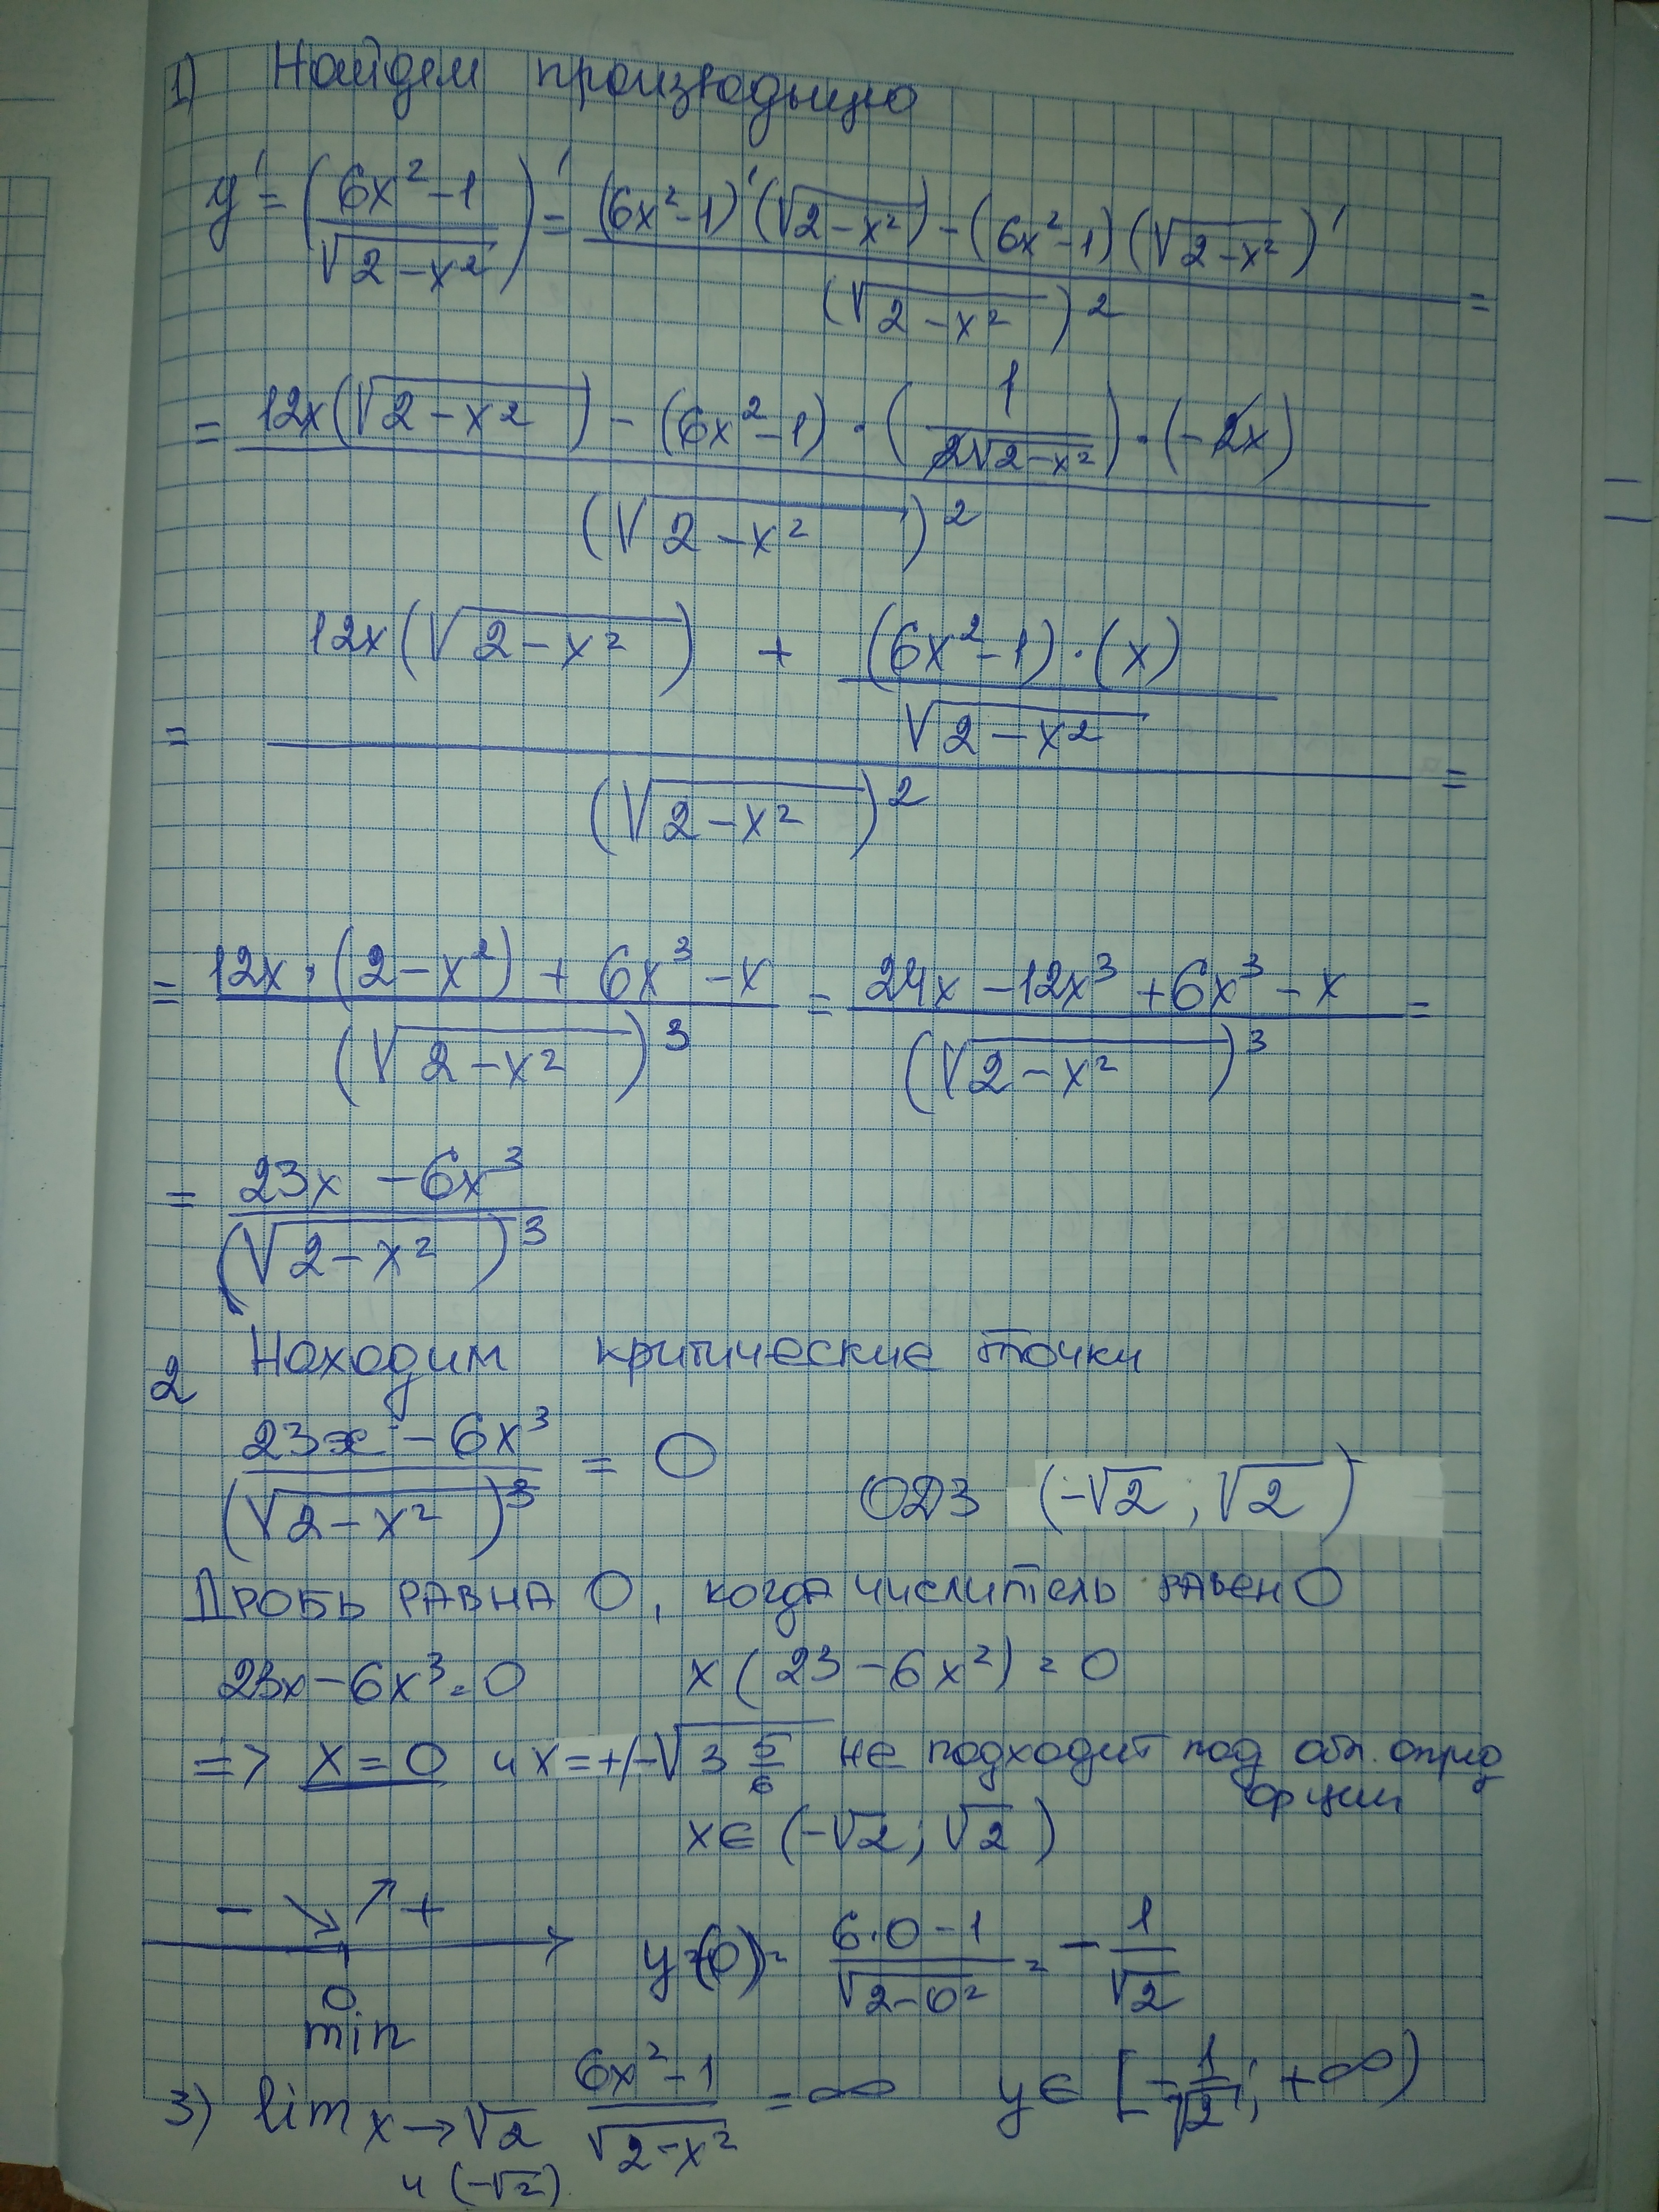 1) Найдем производную
y' = (6x²-1 / √(2-x²))' = ((6x²-1)'(√(2-x²)) - (6x²-1)(√(2-x²))') / (√(2-x²))² =
= (12x(√(2-x²)) - (6x²-1)·(1 / 2√(2-x²))·(-2x)) / (√(2-x²))²
= (12x(√(2-x²)) + (6x²-1)·(x) / √(2-x²)) / (√(2-x²))² =
= (12x·(2-x²) + 6x³-x) / (√(2-x²))³ = (24x-12x³+6x³-x) / (√(2-x²))³ =
= (23x-6x³) / (√(2-x²))³
2 Находим критические точки
(23x-6x³) / (√(2-x²))³ = 0 ОДЗ (-√2; √2)
Дробь равна 0, когда числитель равен 0
23x-6x³=0 x(23-6x²)=0
=> x=0 и x=+/-√(3 5/6) не подходит под обл. опред
фции
x∈(-√2; √2)
- ↘ ↗ + y=(0)= (6·0-1) / √(2-0²) = -1/√2
0
min
3) lim x→√2 (6x²-1) / √(2-x²) = ∞ y∈[-1/√2; +∞)
и (-√2)